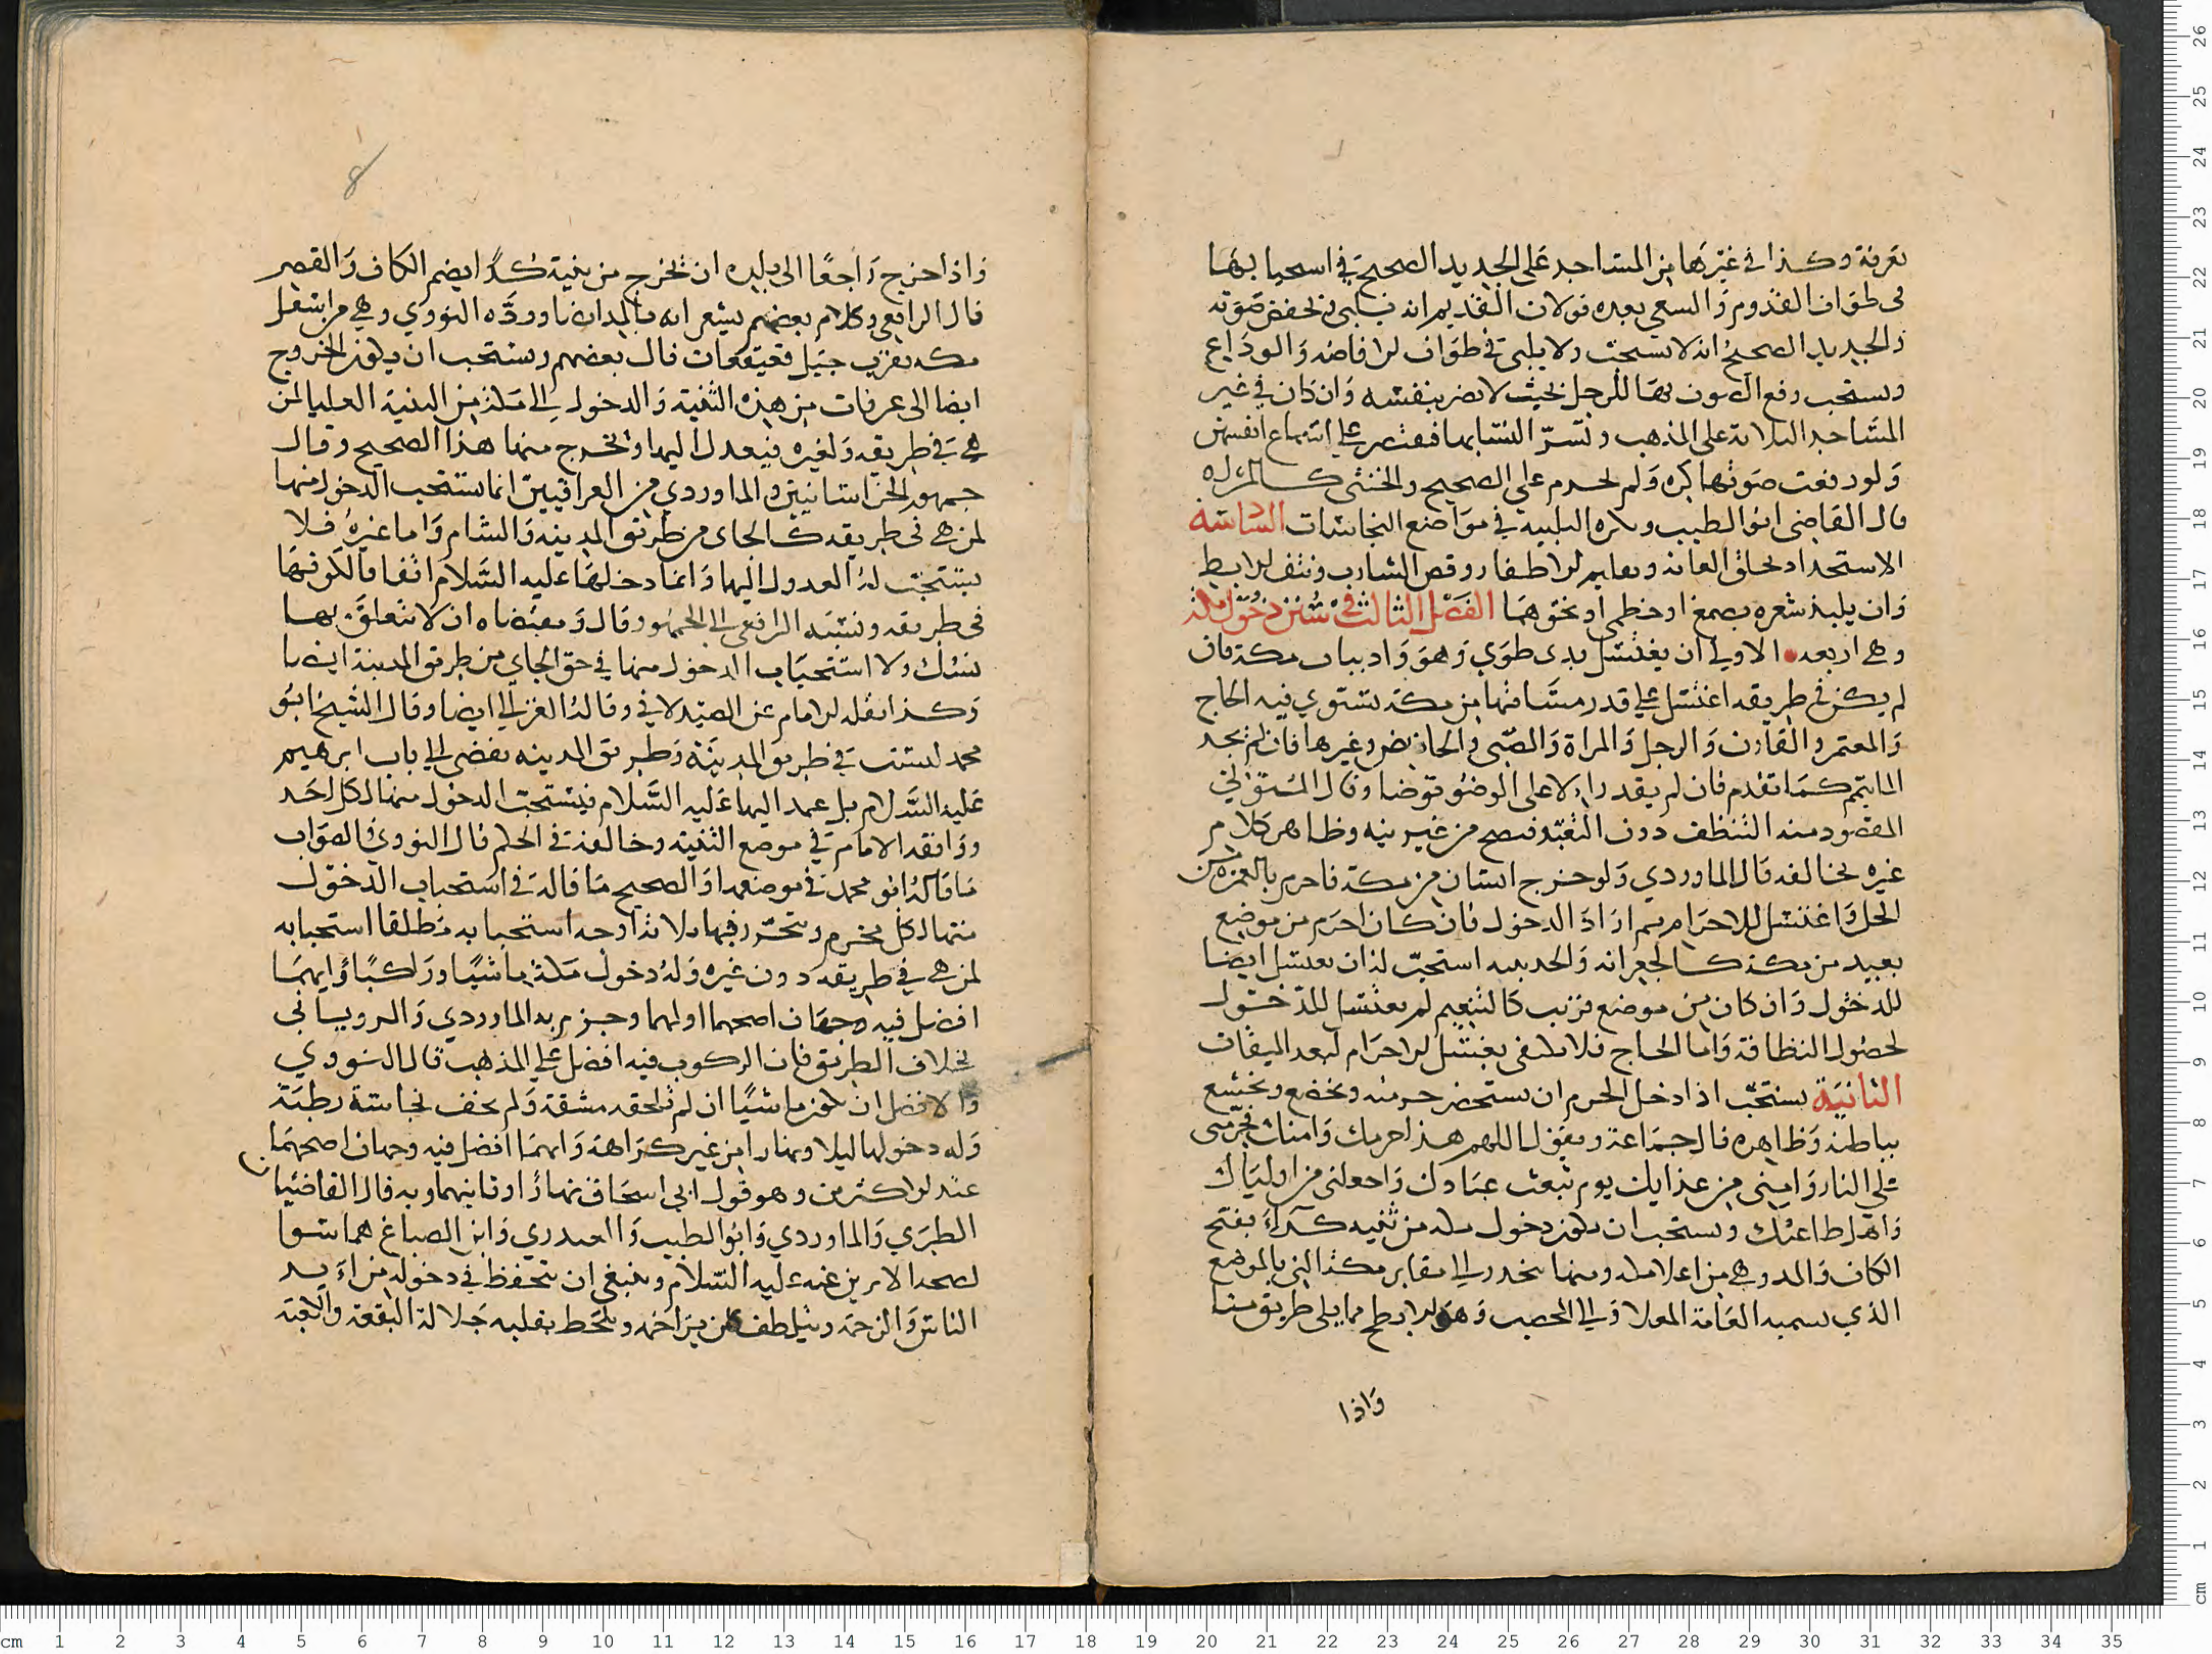 بعرفة وكذا في غيرها من المساجد على الجديد الصحيح في استحبابها
في طواف القدوم والسعي بعده قولان القديم انه يلبى ويخفض صوته
والجديد الصحيح انه لا يستحب ولا يلبى في طواف الافاضه والوداع
ويستحب رفع الصوت بها للرجل بحيث لا يضر بنفسه وان كان في غير
المساجد الثلاثة على المذهب وتسر النسا بها فيقتصر على استماع انفسهن
ولو رفعت صوتها كره ولم يحرم على الصحيح والخنثى كالمراه
قال القاضي ابو الطيب ويكره التلبيه في مواضع النجاسات السادسة
الاستحداد بحلق العانه وتقليم الاظفار وقص الشارب ونتف الابط
وان يلبد شعره بصمغ او خطمي او نحوهما الفصل الثالث في سنن دخول مكة
وهي اربعه الاولى ان يغتسل بذى طوي وهو واد بباب مكة فان
لم يكن في طريقه اغتسل على قدر مسافتها من مكة يستوي فيه الحاج
والمعتمر والقارن والرجل والمراة والصبي والحايض وغيرها فان لم يجد
الما يتيمم كما تقدم فان لم يقدر الا على الوضو توضا وقال المتولي
المقصود منه التنظف دون التعبد فيصح من غير نيه وظاهر كلام
غيره يخالفه قال الماوردي ولو خرج انسان من مكة فاحرم بالعمره من
الحل واغتسل للاحرام ثم اراد الدخول فان كان احرم من موضع
بعيد من مكة كالجعرانه والحديبيه استحب له ان يغتسل ايضا
للدخول وان كان من موضع قريب كالتنعيم لم يغتسل للدخول
لحصول النظافة واما الحاج فلا يكفى بغسل الاحرام لبعد الميقات
الثانية يستحب اذا دخل الحرم ان يستحضر حرمته ويخضع ويخشع
بباطنه وظاهره قال جماعة ويقول اللهم هذا حرمك وامنك فحرمني
على النار وامني من عذابك يوم تبعث عبادك واجعلني من اوليائك
واهل طاعتك ويستحب ان يكون دخول مكه من ثنيه كداء بفتح
الكاف والمد وهي من اعلا مكه ومنها ينحدر الي مقابر مكة التي بالموضع
الذي يسميه العامة المعلا والي المحصب وهو الابطح مما يلي طريق منا
واذا
واذا خرج راجعا الى بلده ان يخرج من ثنية كدا بضم الكاف والقصر
قال الرافعي وكلام بعضهم يشعر انه بالمد ايضا ورده النووي وهي من اسفل
مكه بقرب جبل قعيقعان قال بعضهم ويستحب ان يكون الخروج
ايضا الى عرفات من هذه الثنية والدخول الى مكة من الثنية العليا لمن
هي في طريقه ولغيره فيعدل اليها ويخرج منها هذا الصحيح وقال
جمهور الخراسانيين والماوردي من العراقيين انما يستحب الدخول منها
لمن هي في طريقه كالجاي من طريق المدينه والشام واما غيره فلا
يستحب له العدول اليها وانما دخلها عليه السلام اتفاقا لكونها
في طريقه ونسبه الرافعي الى الجمهور وقال ومعناه ان لا تتعلق بها
نسك ولا استحباب الدخول منها في حق الجاي من طريق المدينة ايضا
وكذا نقله الامام عن الصيدلاني وقاله الغزالي ايضا وقال الشيخ ابو
محمد ليست في طريق المدينة وطريق المدينه يفضي الي باب ابرهيم
عليه السلام بل عمد اليها عليه السلام فيستحب الدخول منها لكل احد
ووافقه الامام في موضع الثنية وخالفه في الحكم قال النووي الصواب
ما قاله ابو محمد في موضعها والصحيح ما قاله في استحباب الدخول
منها لكل محرم ويتحرر فيها ثلاثة اوجه استحبابه مطلقا استحبابه
لمن هي في طريقه دون غيره وله دخول مكة ماشيا وراكبا وايهما
افضل فيه وجهان اصحهما اولهما وجزم به الماوردي والروياني
بخلاف الطريق فان الركوب فيه افضل على المذهب قال النووي
والافضل ان يكون ماشيا ان لم تلحقه مشقة ولم يخف نجاسة رطبة
وله دخولها ليلا ونهارا من غير كراهة وايهما افضل فيه وجهان اصحهما
عند الاكثرين وهو قول ابي اسحاق نهارا وثانيهما وبه قال القاضيان
الطبري والماوردي وابو الطيب والعبدري وابن الصباغ هما سوا
لصحة الامرين عنه عليه السلام وينبغي ان يتحفظ في دخوله من ايذ
الناس والزحمة ويتلطف بمن يزاحمه ويلحظ بقلبه جلالة البقعة والكعبة